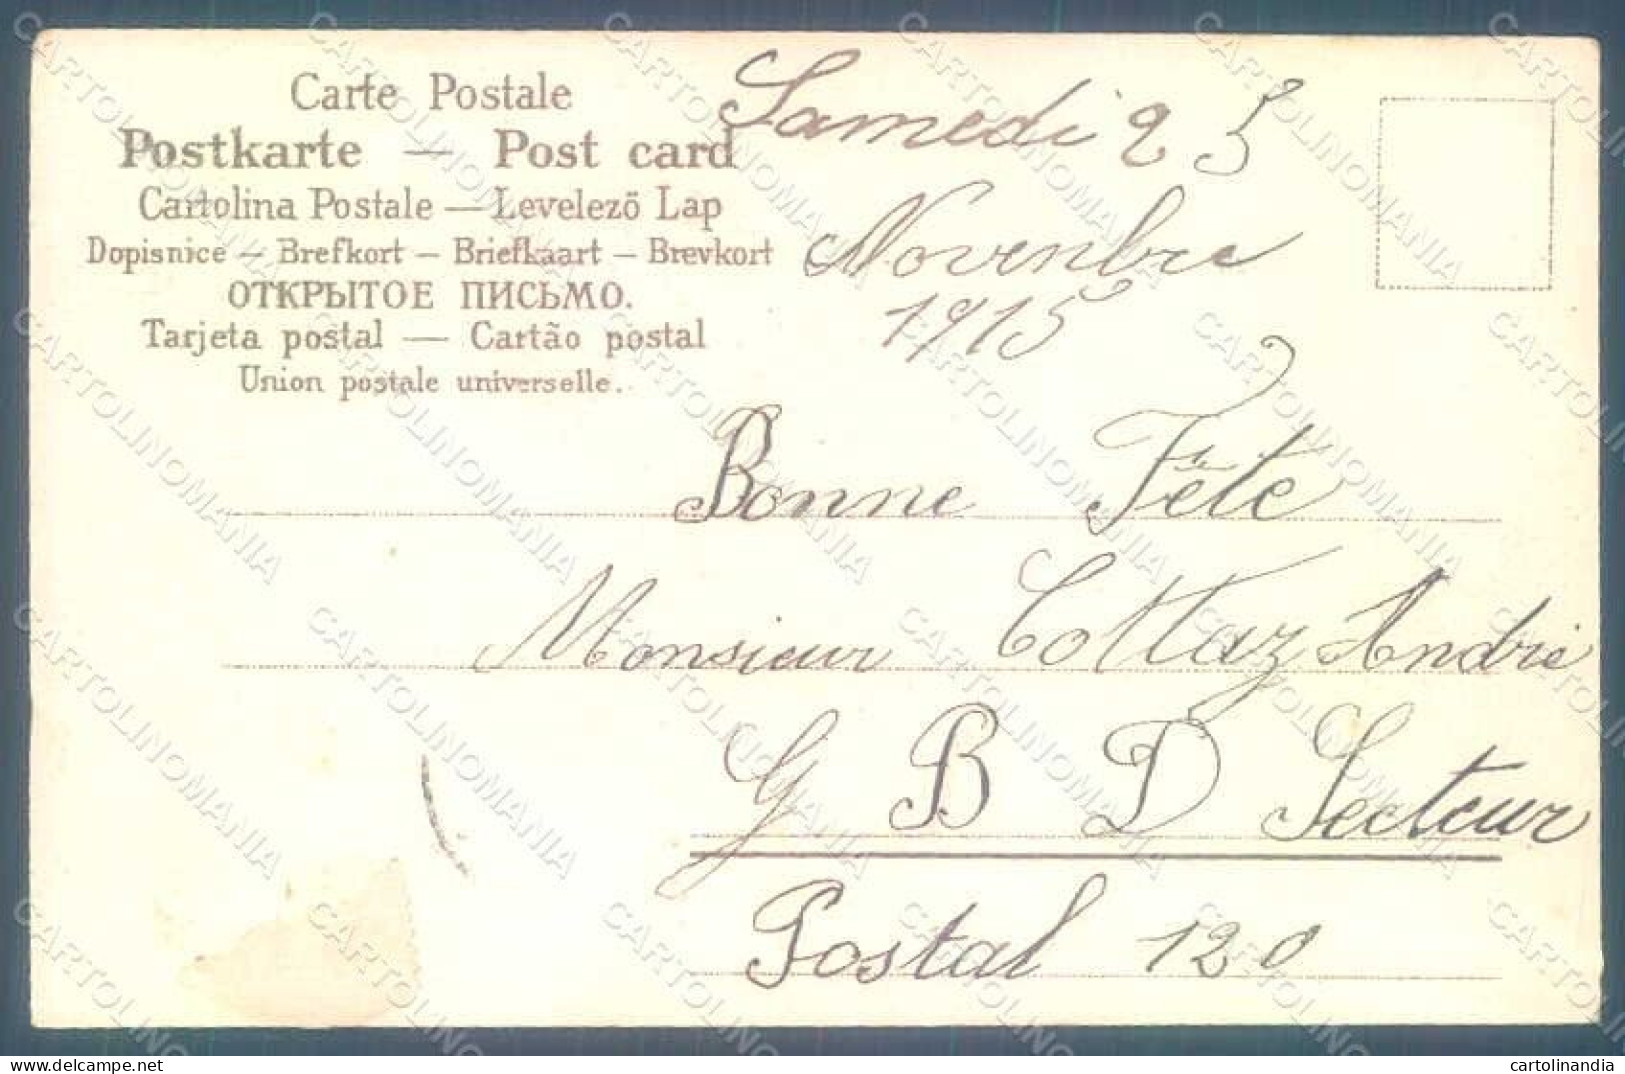 Carte Postale
Postkarte — Post card
Cartolina Postale — Levelező Lap
Dopisnice — Brefkort — Briefkaart — Brevkort
ОТКРЫТОЕ ПИСЬМО.
Tarjeta postal — Cartão postal
Union postale universelle.
Samedi 25
Novenbre
1915
Bonne Fête
Monsieur Cottaz Andre
G B D Secteur
Postal 120
CARTOLINOMANIA
delcampe.net
cartolinandia